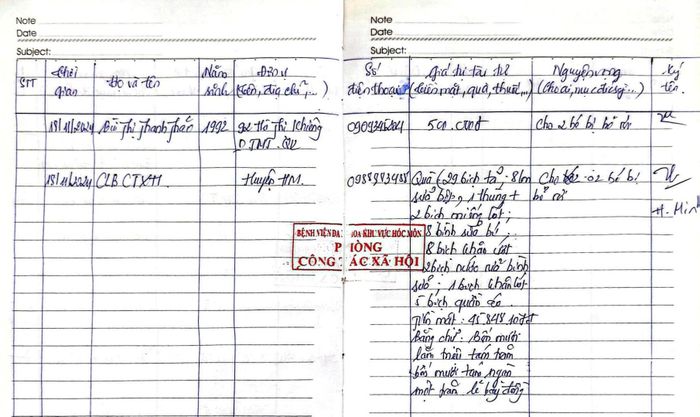 Note
Date
Subject:
STT
Thời gian
Họ và tên
Năm sinh
Đơn vị (tên, địa chỉ,...)
18/11/2024 Bùi Thị Thanh 1992
18/11/2024 CLB CTXH. Huyện HM.
BỆNH VIỆN ĐA KHOA KHU VỰC HÓC MÔN
PHÒNG
CÔNG TÁC XÃ HỘI
Note
Date
Subject:
Số điện thoại
Giá trị tài trợ (tiền mặt, quà, thuốc...)
Nguyện vọng (Cho ai, mục đích gì...)
Ký tên.
500.000đ Cho 2 bé bị bỏ rơi
Quà (29 bịch tã, 8 lon Cho 02 bé bị
sữa bột, 1 thùng + bỏ rơi
2 bịch miếng lót; H. Minh
8 bình sữa bé;
8 bịch khăn ướt
2 bịch nước rửa bình
sữa; 1 bịch khăn lót
5 bịch quần áo.
Tiền mặt:
Bằng chữ: Bốn mươi
lăm triệu tám trăm
bốn mươi tám ngàn
một trăm lẻ bảy đồng